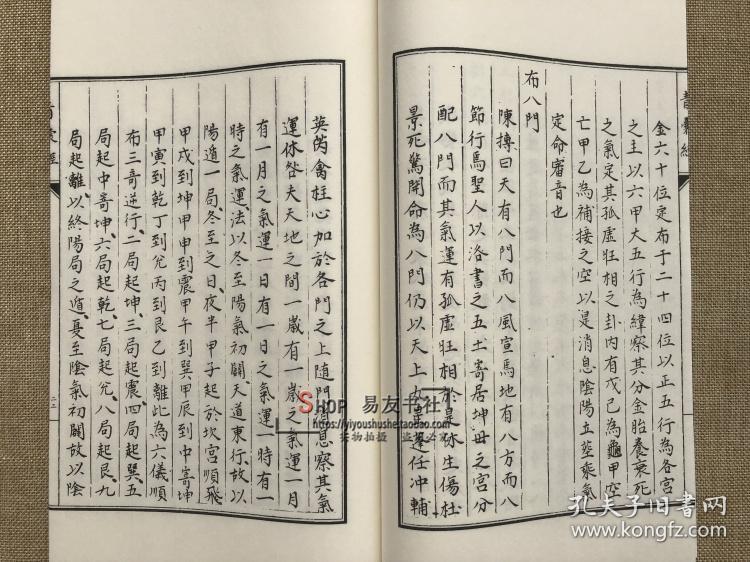 金六十位定布于二十四位以正五行為各宮
之主以六甲大五行為緯察其分金胎養衰死
之氣定其孤虛旺相之卦內有戊己為龜甲空
亡甲乙為補接之空以是消息陰陽立莖乘氣
定命審音也
布八門
陳摶曰天有八門而八風宣焉地有八方而八
節行焉聖人以洛書之五土寄居坤母之宮分
配八門而其氣運有孤虛旺相於是休生傷杜
景死驚開命為八門仍以天上九星蓬任冲輔
英芮禽柱心加於各門之上隨門消息察其氣
運休咎夫天地之間一歲有一歲之氣運一月
有一月之氣運一日有一日之氣運一時有一
時之氣運法以冬至陽氣初闢天道東行故以
陽遁一局冬至之日夜半甲子起於坎宮順飛
甲戌到坤甲申到震甲午到巽甲辰到中寄坤
甲寅到乾丁到兌丙到艮乙到離此為六儀順
布三奇逆行二局起坤三局起震四局起巽五
局起中寄坤六局起乾七局起兌八局起艮九
局起離以終陽局之遁夏至陰氣初闢故以陰
青囊經
二二
Shop 易友书社
https://yiyoushushe.taobao.com
实物拍摄 盗图必究
孔夫子旧书网
www.kongfz.com